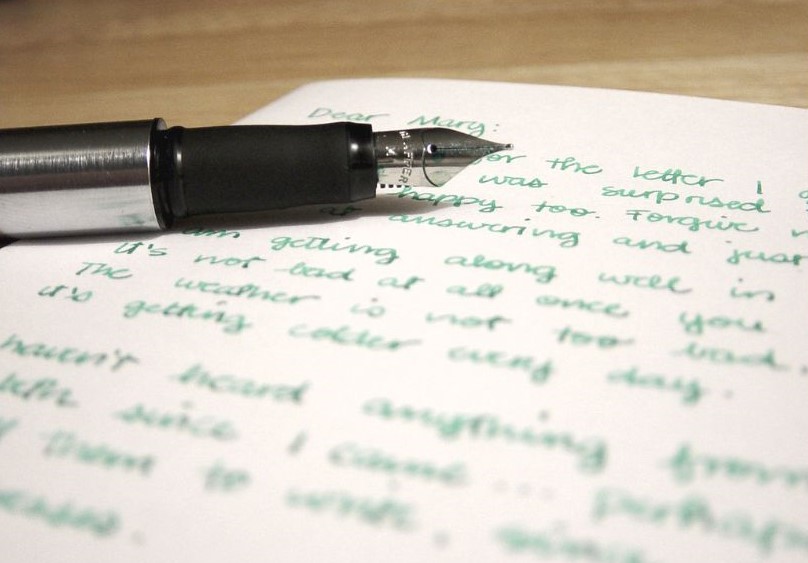 Dear Mary:
for the letter I
was surprised
happy too. Forgive
at answering and just
am getting along well in
It's not bad at all once you
The weather is not too bad.
it's getting colder every day.
haven't heard anything from
since I came... perhaps
them to write.